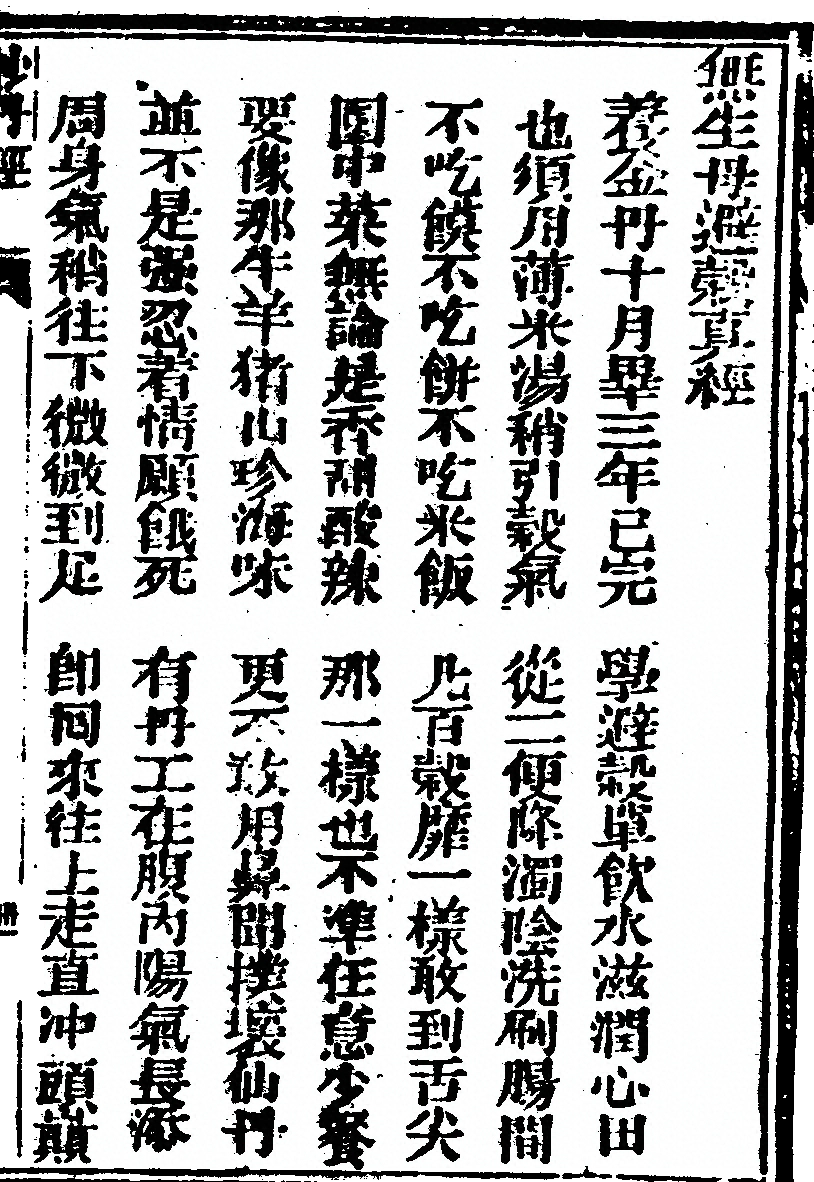 無生母避穀真經
養金丹十月畢三年已完 學避穀單飲水滋潤心田
也須用薄米湯稍引穀氣 從二便降濁陰洗刷腸間
不吃饃不吃餅不吃米飯 凡百穀靡一樣敢到舌尖
園中菜無論是香甜酸辣 那一樣也不準任意少餐
要像那牛羊猪山珍海味 更不敢用鼻聞撲壞仙丹
並不是強忍著情願餓死 有丹工在腹內陽氣長添
周身氣稍往下微微到足 即回來往上走直冲頭顛